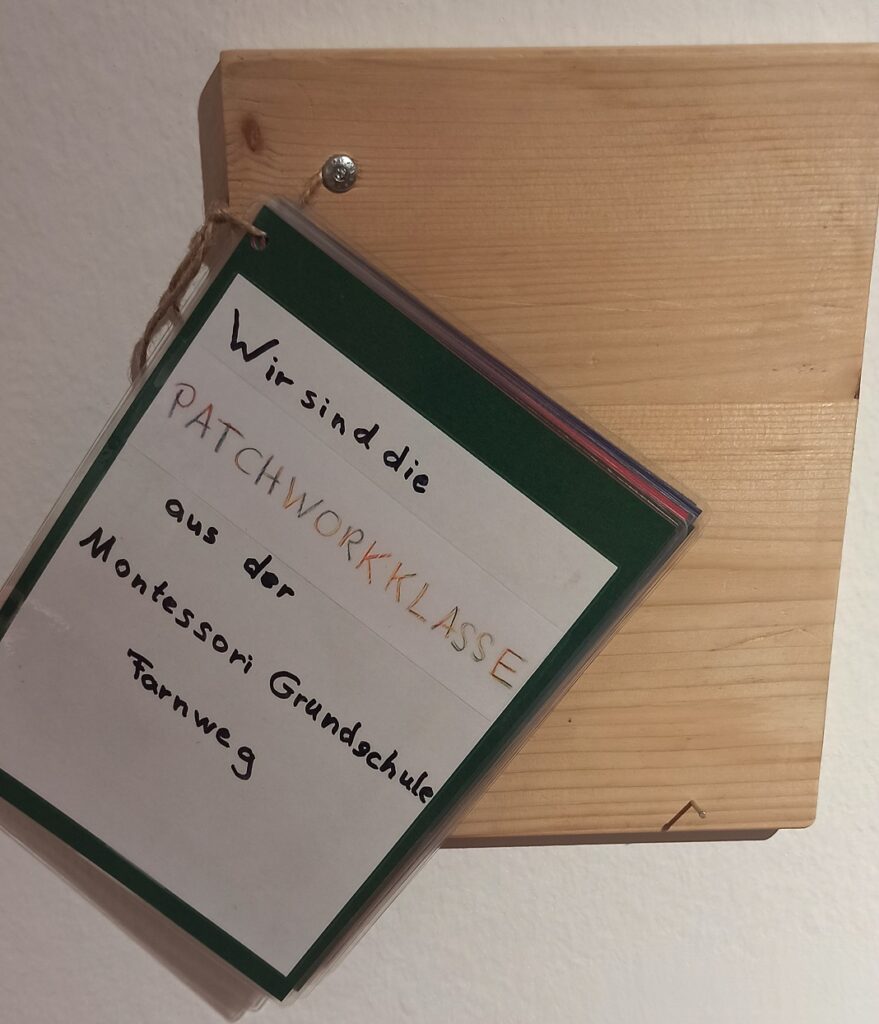 Wir sind die
PATCHWORKKLASSE
aus der
Montessori Grundschule
Farnweg